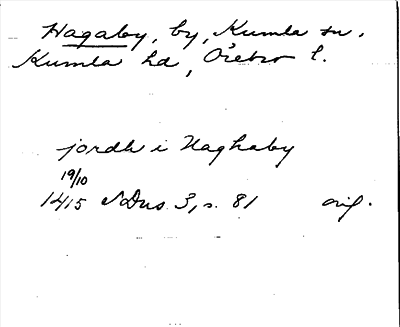 Hagaby, by, Kumla sn.
Kumla hd, Örebro l.
jordh i Haghaby
19/10
1415 SDns 3, s. 81 orig.